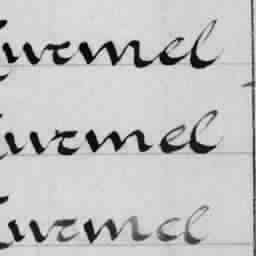 urmel
urmel
urmel